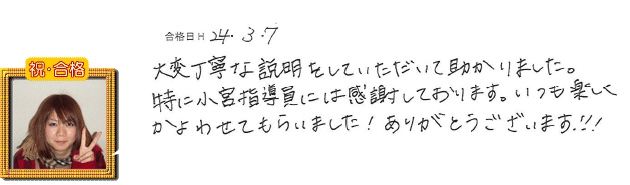 合格日H 24.3.7
祝・合格
大変丁寧な説明をしていただいて助かりました。
特に小宮指導員には感謝しております。いつも楽しく
かよわせてもらいました！ありがとうございます!!!